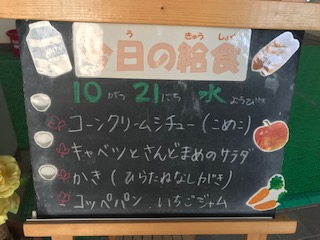 う きゅう しょく
今日の給食
10がつ 21にち 水ようび
コーンクリームシチュー (こめこ)
キャベツとさんどまめのサラダ
かき (ひらたねなしがき)
コッペパン.いちごジャム